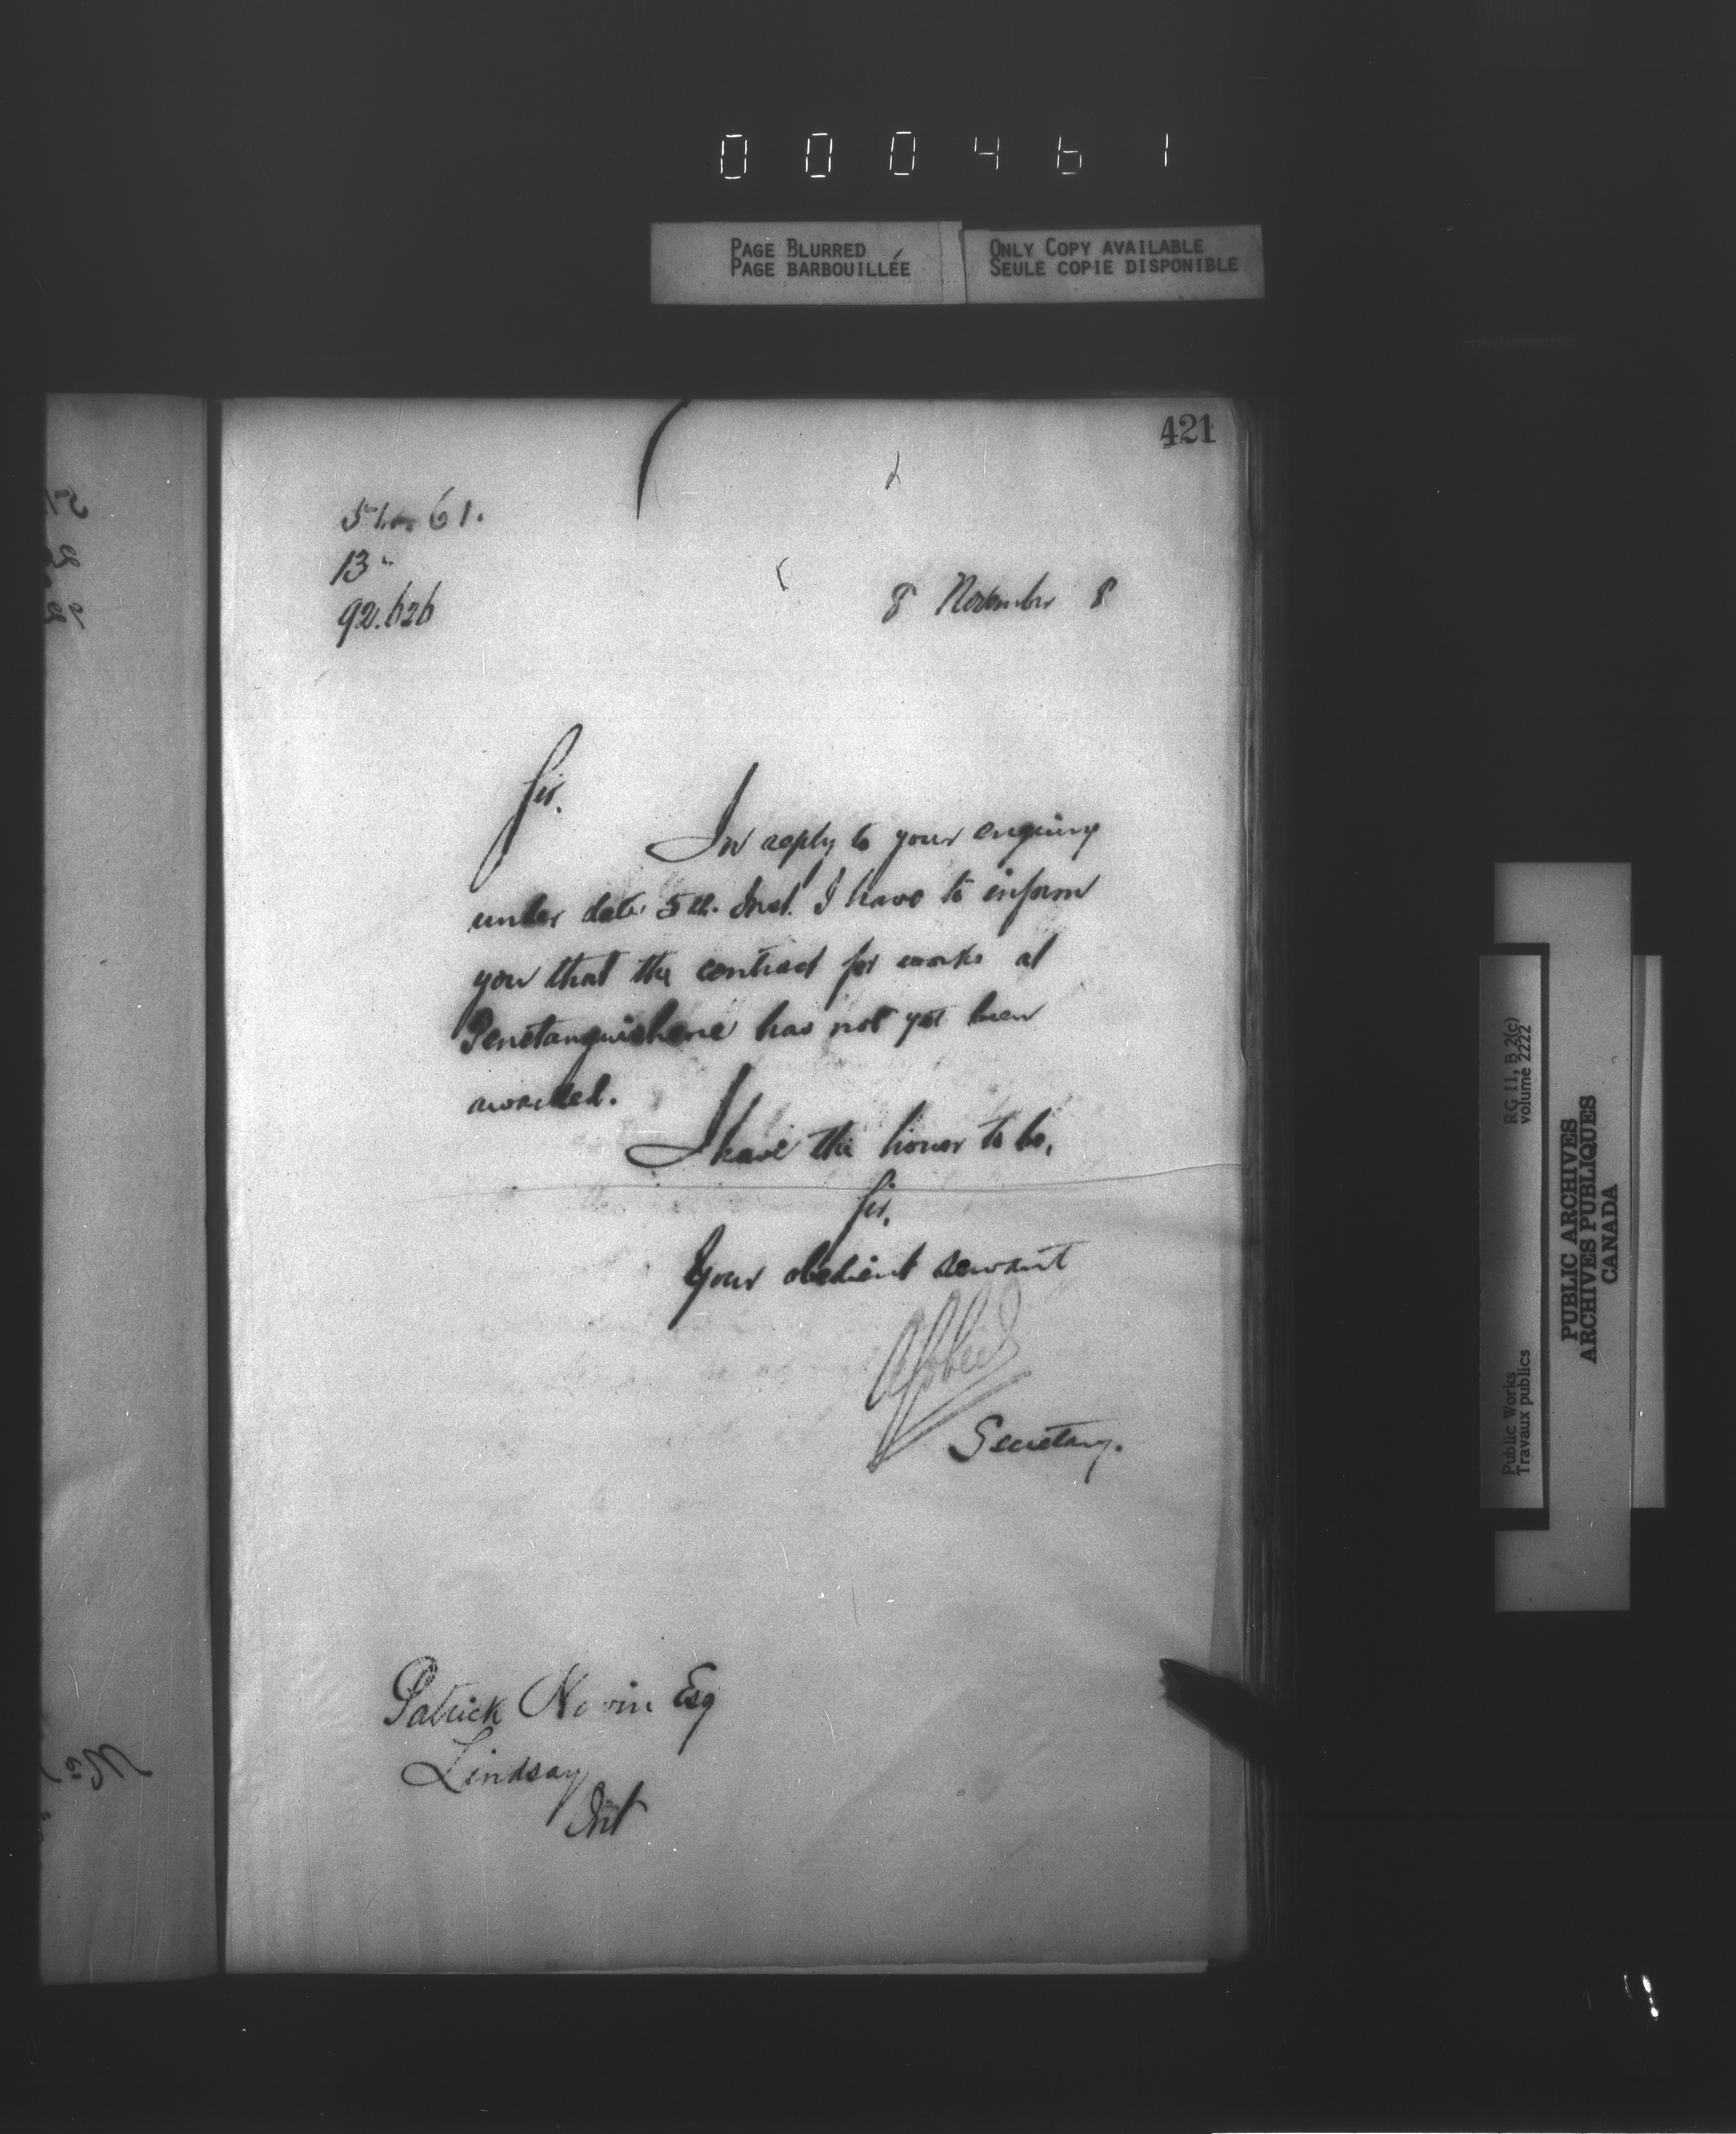 000461
PAGE BLURRED
PAGE BARBOUILLÉE
ONLY COPY AVAILABLE
SEULE COPIE DISPONIBLE
421
61.
13
92.626
8 November 8
Sir.
In reply to your enquiry
under date 5th. Inst. I have to inform
you that the contract for works at
Penetanguishene has not yet been
awarded.
I have the honor to be,
Sir,
Your obedient servant
Secretary.
Patrick Esq
Lindsay
Ont
RG 11, B 2(c)
volume 2222
Public Works
Travaux publics
PUBLIC ARCHIVES
ARCHIVES PUBLIQUES
CANADA